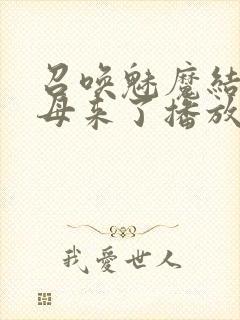 召唤魅魔結
母来了播放
我愛世人